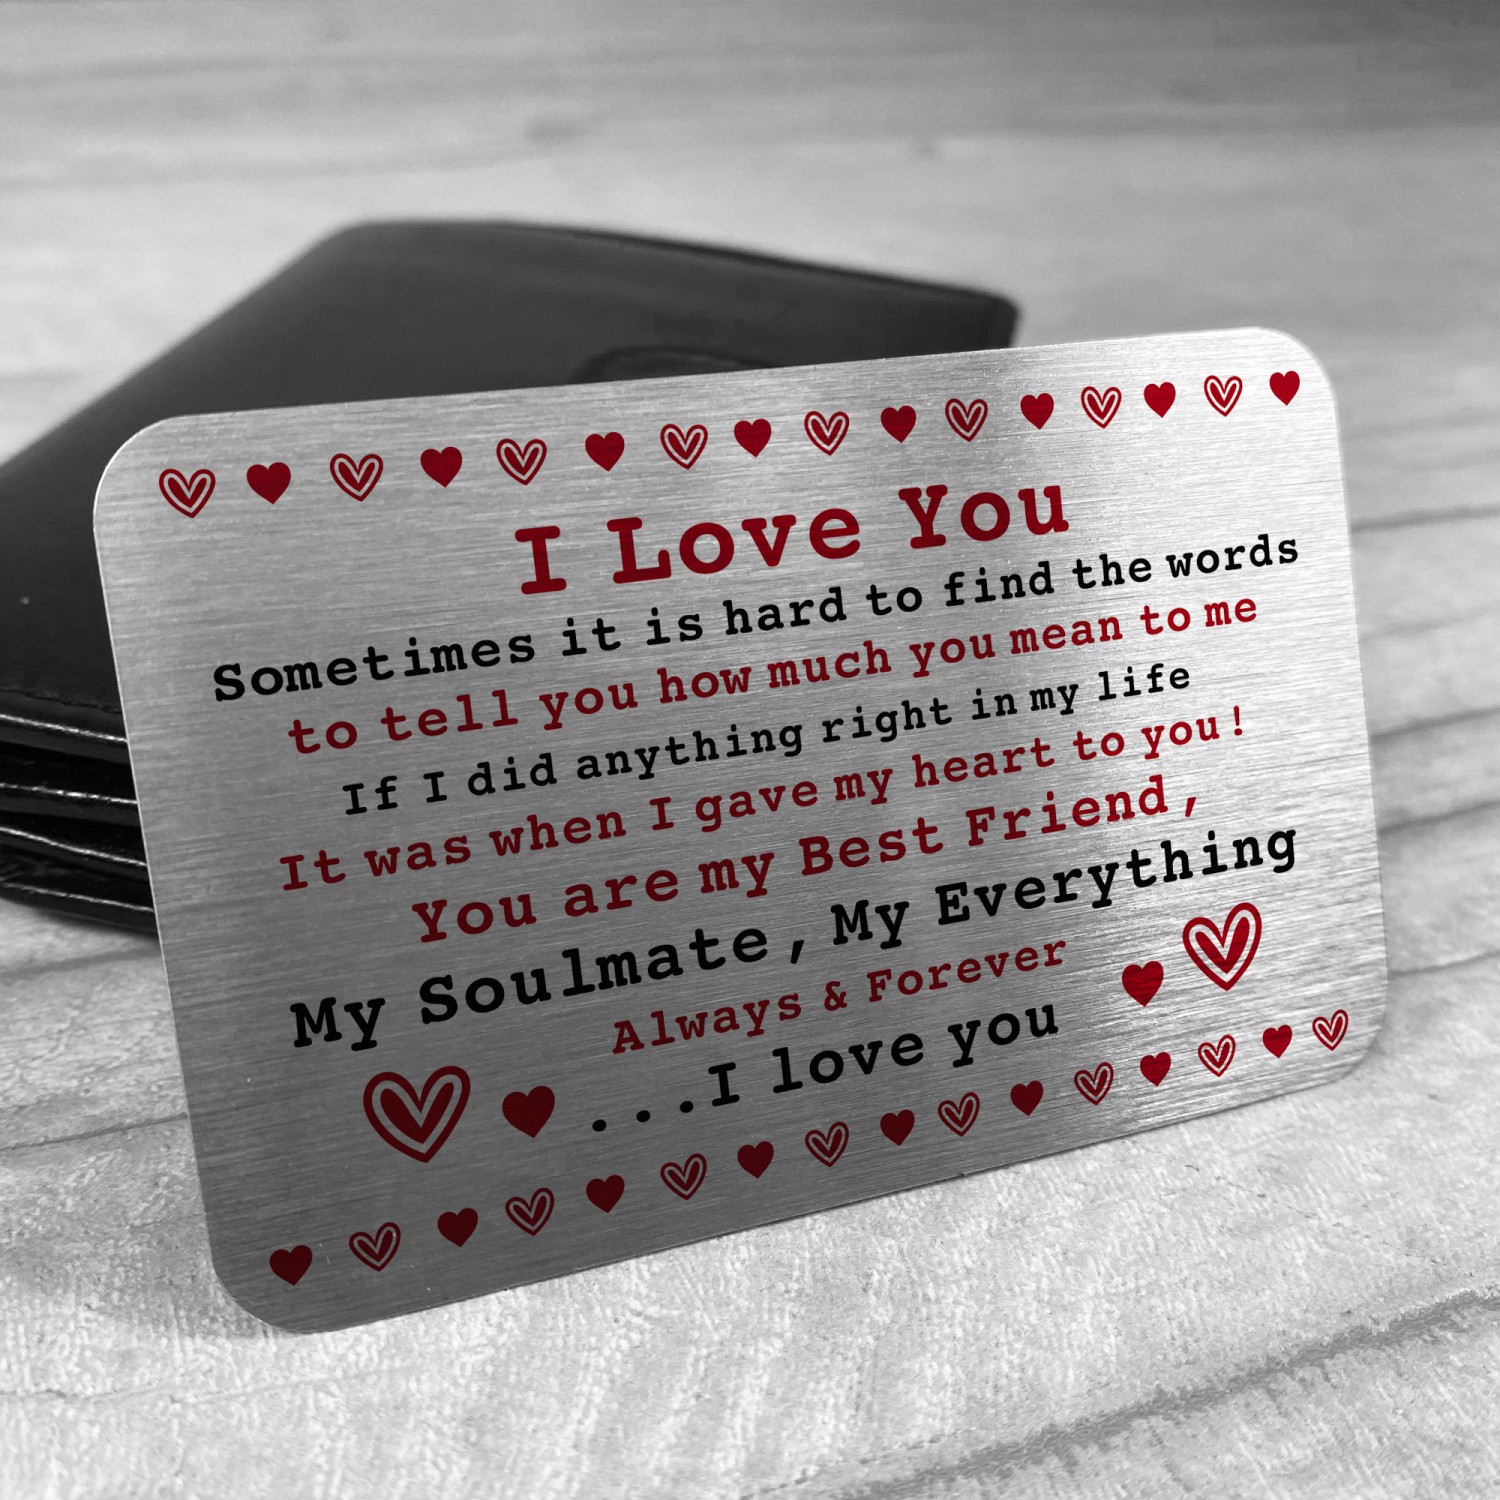 I Love You
Sometimes it is hard to find the words
to tell you how much you mean to me
If I did anything right in my life
It was when I gave my heart to you!
You are my Best Friend,
My Soulmate, My Everything
Always & Forever
...I love you